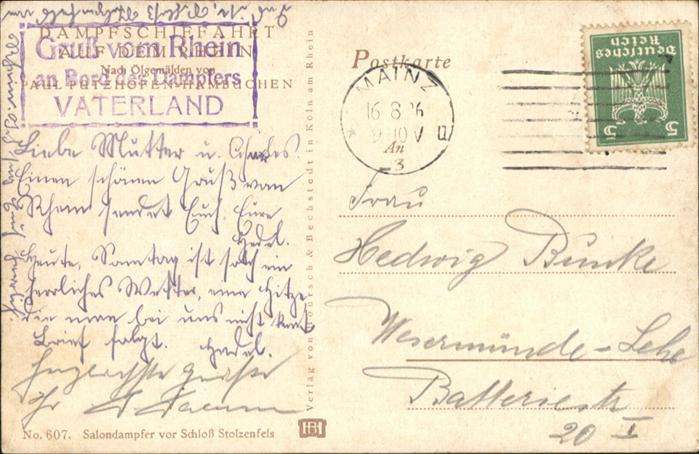 DAMPFSCHIFFAHRT
AUF DEM RHEIN
Nach Ölgemälden von
PAUL PÜTZHOFEN-HAMBÜCHEN
Gruß vom Rhein
an Bord des Dampfers
VATERLAND
Liebe Mutter u. Charles.
Einen schönen Gruß vom
Rhein sendet Euch Eure
Hedel.
Heute, Sonntag ist solch ein
herrliches Wetter, eine Hitze
die man bei uns nicht kennt
Brief folgt. Hedel.
Herzlichste Grüße
Ihr
No. 607. Salondampfer vor Schloß Stolzenfels
Verlag von Hoursch & Bechstedt in Köln am Rhein
Postkarte
MAINZ
16.8.26
9-10 V
An
3
Deutsches
Reich
5 5
Frau
Hedwig Bunke
Wesermünde-Lehe
Batteriestr
20 I